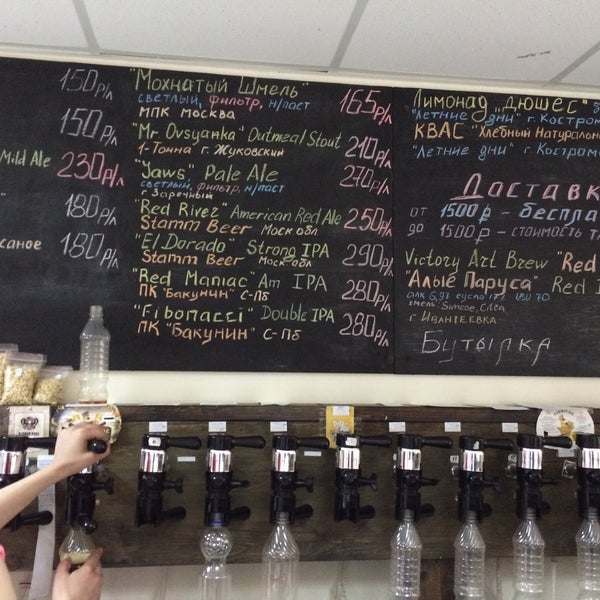 150 р/л
150 р/л
Mild Ale 230 р/л
180 р/л
180 р/л
"Мохнатый Шмель"
светлый, фильтр, н/паст 165 р/л
МПК Москва
"Mr. Ovsyanka" Outmeal Stout
1-Тонна г. Жуковский 210 р/л
"Jaws" Pale Ale 270 р/л
светлый, фильтр, н/паст
г. Заречный
"Red River" American Red Ale 250 р/л
Stamm Beer Моск обл
"El Dorado" Strong IPA 290 р/л
Stamm Beer Моск обл
"Red Maniac" Am IPA 280 р/л
ПК "Бакунин" С-Пб
"Fibonacci" Double IPA 280 р/л
ПК "Бакунин" С-Пб
Лимонад "Дюшес"
"Летние дни" г. Костром
КВАС "Хлебный Натуральн
"Летние дни" г. Костром
Доставк
от 1500 ₽ - беспла
до 1500 ₽ - стоимость
Victory Art Brew "Red
"Алые Паруса" Red I
хмель: Simcoe, Citra
г. Ивантеевка
Бутылка